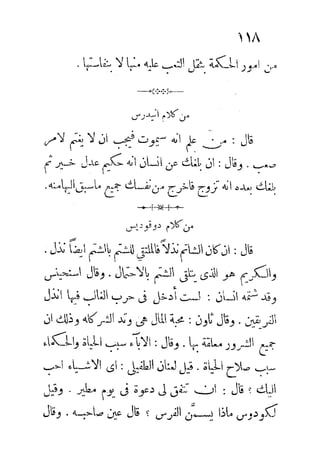 ١١٨
من امور الحكمة بثقل التعب عليه منها لا بنفاستها .
من كلام انيدرس
قال : من علم انه سيموت فيجب ان لا يغتم لامر
صعب . وقال : ان بلغك عن انسان انه حكيم عدل خير ثم
بلغك بعده انه تزوج فاخرج من نفسك جميع ما سبق اليها منه .
من كلام دوفوديس
قال : ان كان الشاتم نذلاً فالملتقي للشتم بالشتم ايضاً نذل .
والكريم هو الذى يتلقى الشتم بالاحتمال . وقال استجينس
وقد شتمه انسان : لست أدخل فى حرب الغالب فيها انذل
الفريقين . وقال ثاون : محبة المال هى وتد الشر كله وذلك ان
جميع الشرور معلقة بها . وقال : الآباء سبب الحياة والحكماء
سبب صلاح الحياة . قيل لعنان الطفيلى : اى الاشياء احب
اليك ؟ قال : ان تتفق لى دعوة فى يوم مطير . وقيل
لكودوس ماذا يسمّن الفرس ؟ قال عين صاحبه . وقال